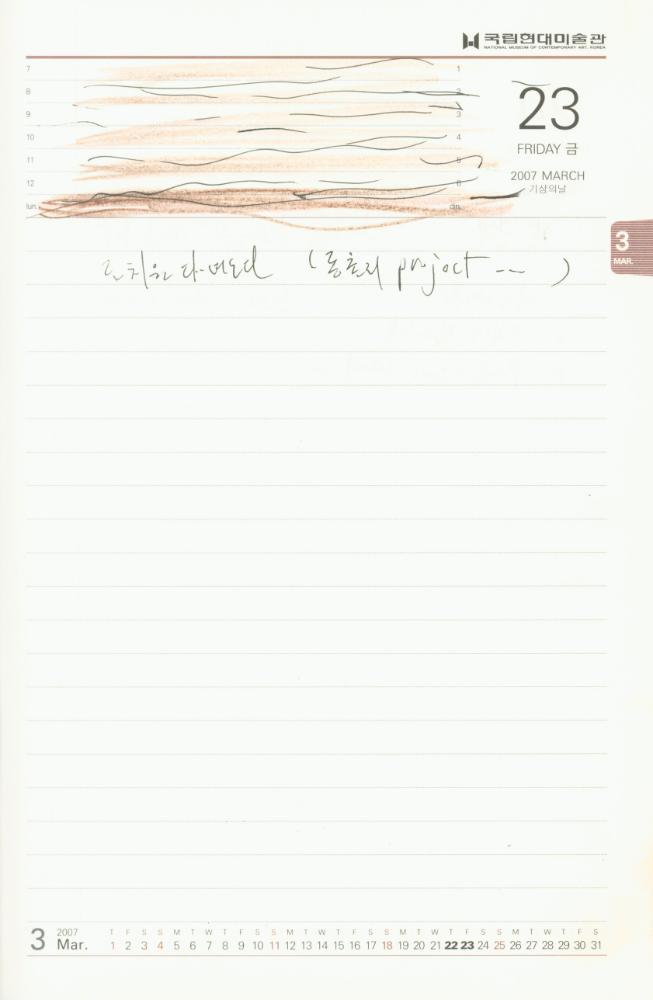 국립현대미술관
NATIONAL MUSEUM OF CONTEMPORARY ART, KOREA
7 1
8 2
9 3
10 4
11 5
12 6
lun. din.
23
FRIDAY 금
2007 MARCH
기상의날
3
MAR.
( project -- )
3 2007 Mar.
T F S S M T W T F S S M T W T F S S M T W T F S S M T W T F S
1 2 3 4 5 6 7 8 9 10 11 12 13 14 15 16 17 18 19 20 21 22 23 24 25 26 27 28 29 30 31